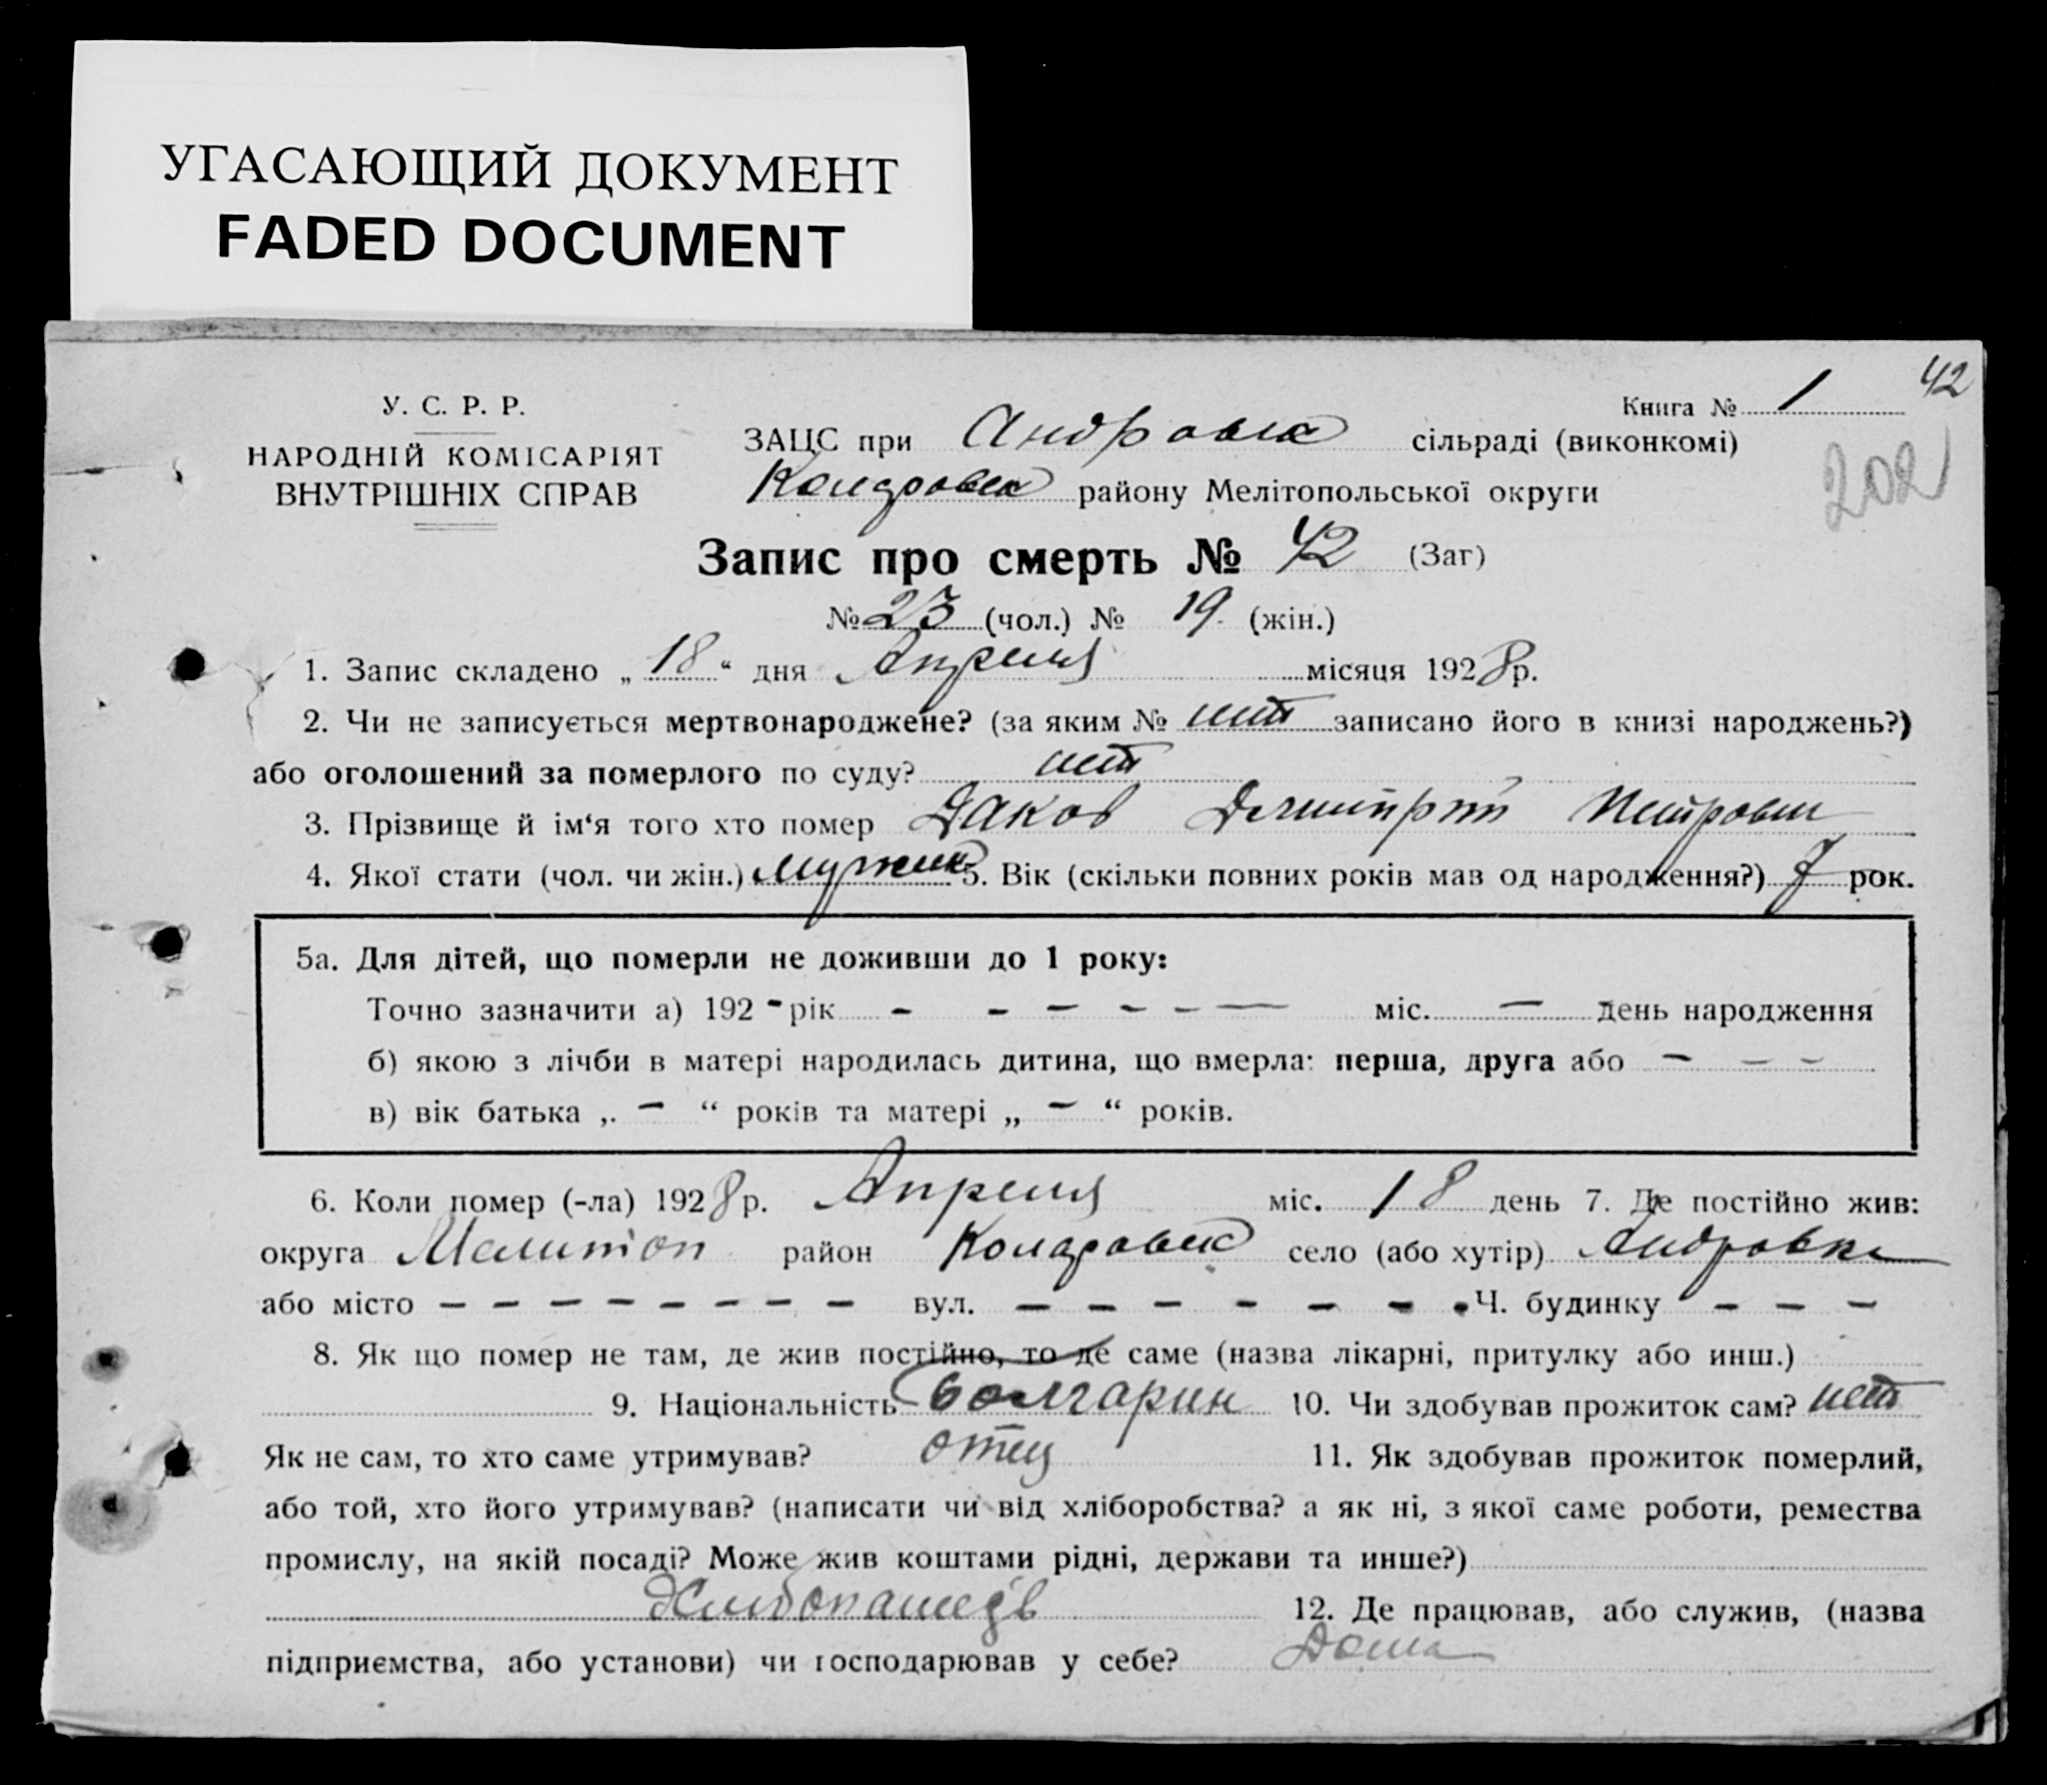 УГАСАЮЩИЙ ДОКУМЕНТ
FADED DOCUMENT
42
У. С. Р. Р.
Книга № 1
НАРОДНІЙ КОМІСАРІЯТ
ВНУТРІШНІХ СПРАВ
ЗАЦС при Андровка сільраді (виконкомі)
202
район­у Мелітопольської округи
Запис про смерть № 42 (Заг)
№ 23 (чол.) № 19 (жін.)
1. Запис складено „ 18 “ дня Апреля місяця 1928р.
2. Чи не записується мертвонароджене? (за яким № нет записано його в книзі народжень?)
або оголошений за померлого по суду? нет
3. Прізвище й ім‘я того хто помер Даков Дмитрий Петрович
4. Якої стати (чол. чи жін.) 5. Вік (скільки повних років мав од народження?) 7 рок.
5а. Для дітей, що померли не доживши до 1 року:
Точно зазначити а) 192 - рік - - - - - — міс. — день народження
б) якою з лічби в матері народилась дитина, що вмерла: перша, друга або - - -
в) вік батька „ - “ років та матері „ - “ років.
6. Коли помер (-ла) 1928р. Апреля міс. 18 день 7. Де постійно жив:
округа Мелитоп район село (або хутір) Андровка
або місто - - - - - - - - вул. - - - - - - - Ч. будинку - - -
8. Як що помер не там, де жив постійно, то де саме (назва лікарні, притулку або инш.)
9. Національність Болгарин 10. Чи здобував прожиток сам? нет
Як не сам, то хто саме утримував? отец 11. Як здобував прожиток померлий,
або той, хто його утримував? (написати чи від хліборобства? а як ні, з якої саме роботи, ремества
промислу, на якій посаді? Може жив коштами рідні, держави та инше?)
12. Де працював, або служив, (назва
підприємства, або установи) чи господарював у себе? Дома